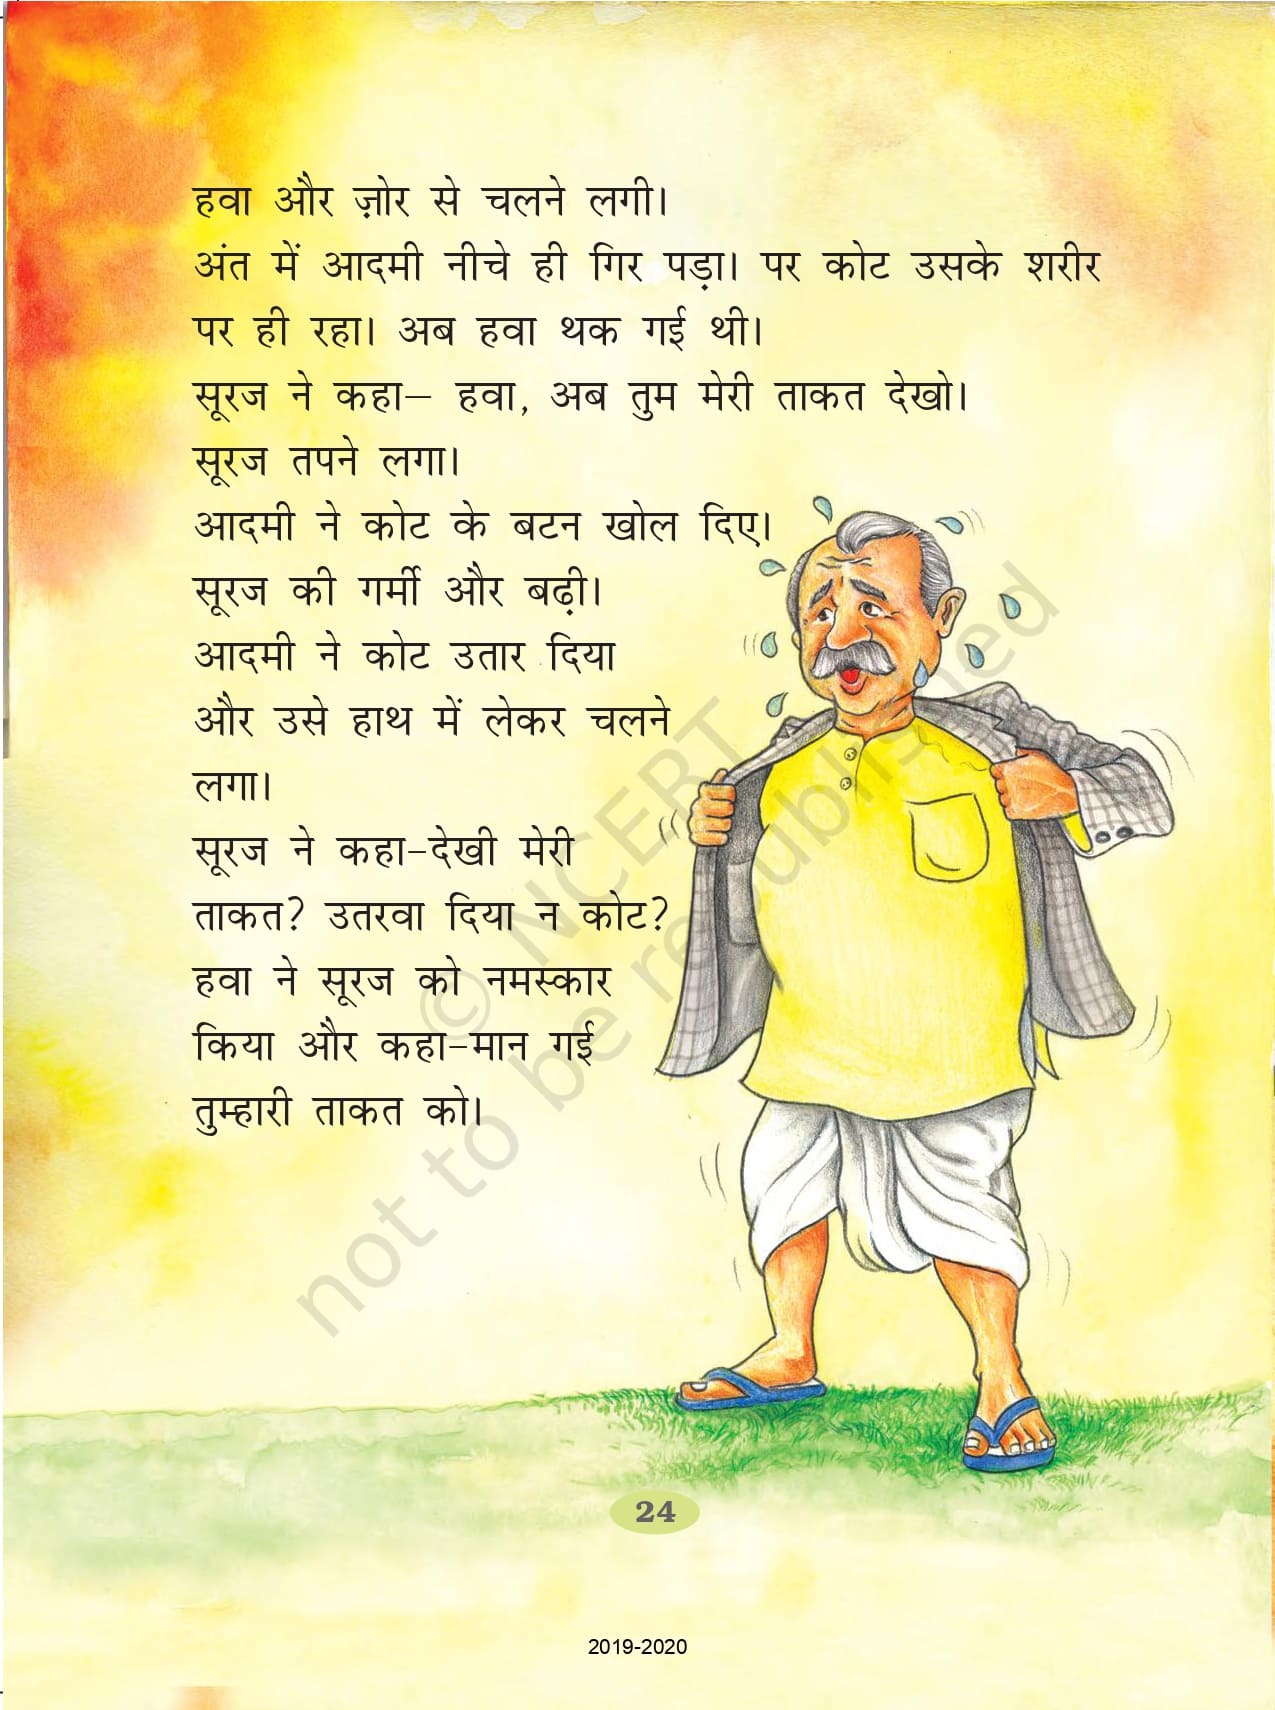 हवा और ज़ोर से चलने लगी।
अंत में आदमी नीचे ही गिर पड़ा। पर कोट उसके शरीर
पर ही रहा। अब हवा थक गई थी।
सूरज ने कहा– हवा, अब तुम मेरी ताकत देखो।
सूरज तपने लगा।
आदमी ने कोट के बटन खोल दिए।
सूरज की गर्मी और बढ़ी।
आदमी ने कोट उतार दिया
और उसे हाथ में लेकर चलने
लगा।
सूरज ने कहा-देखी मेरी
ताकत? उतरवा दिया न कोट?
हवा ने सूरज को नमस्कार
किया और कहा-मान गई
तुम्हारी ताकत को।
© NCERT
not to be republished
24
2019-2020